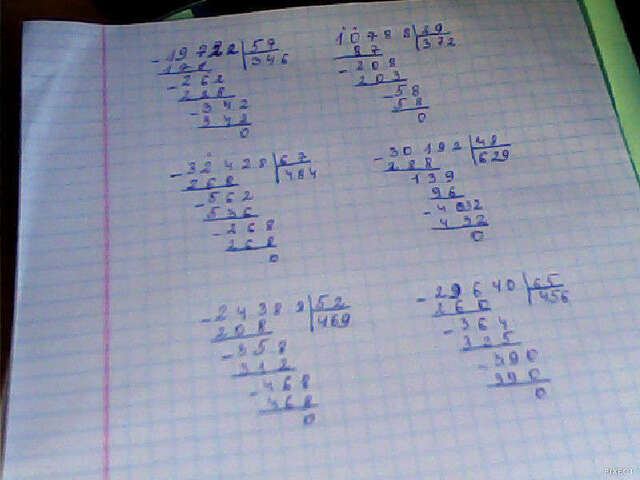 - 19722 | 57
171 | 346
- 262
228
- 342
342
0
10788 | 29
87 | 372
- 208
203
- 58
58
0
- 32428 | 67
268 | 484
- 562
536
- 268
268
0
- 30192 | 48
288 | 629
139
96
- 432
432
0
- 24388 | 52
208 | 469
- 358
312
- 468
468
0
- 29640 | 65
260 | 456
- 364
325
- 390
390
0